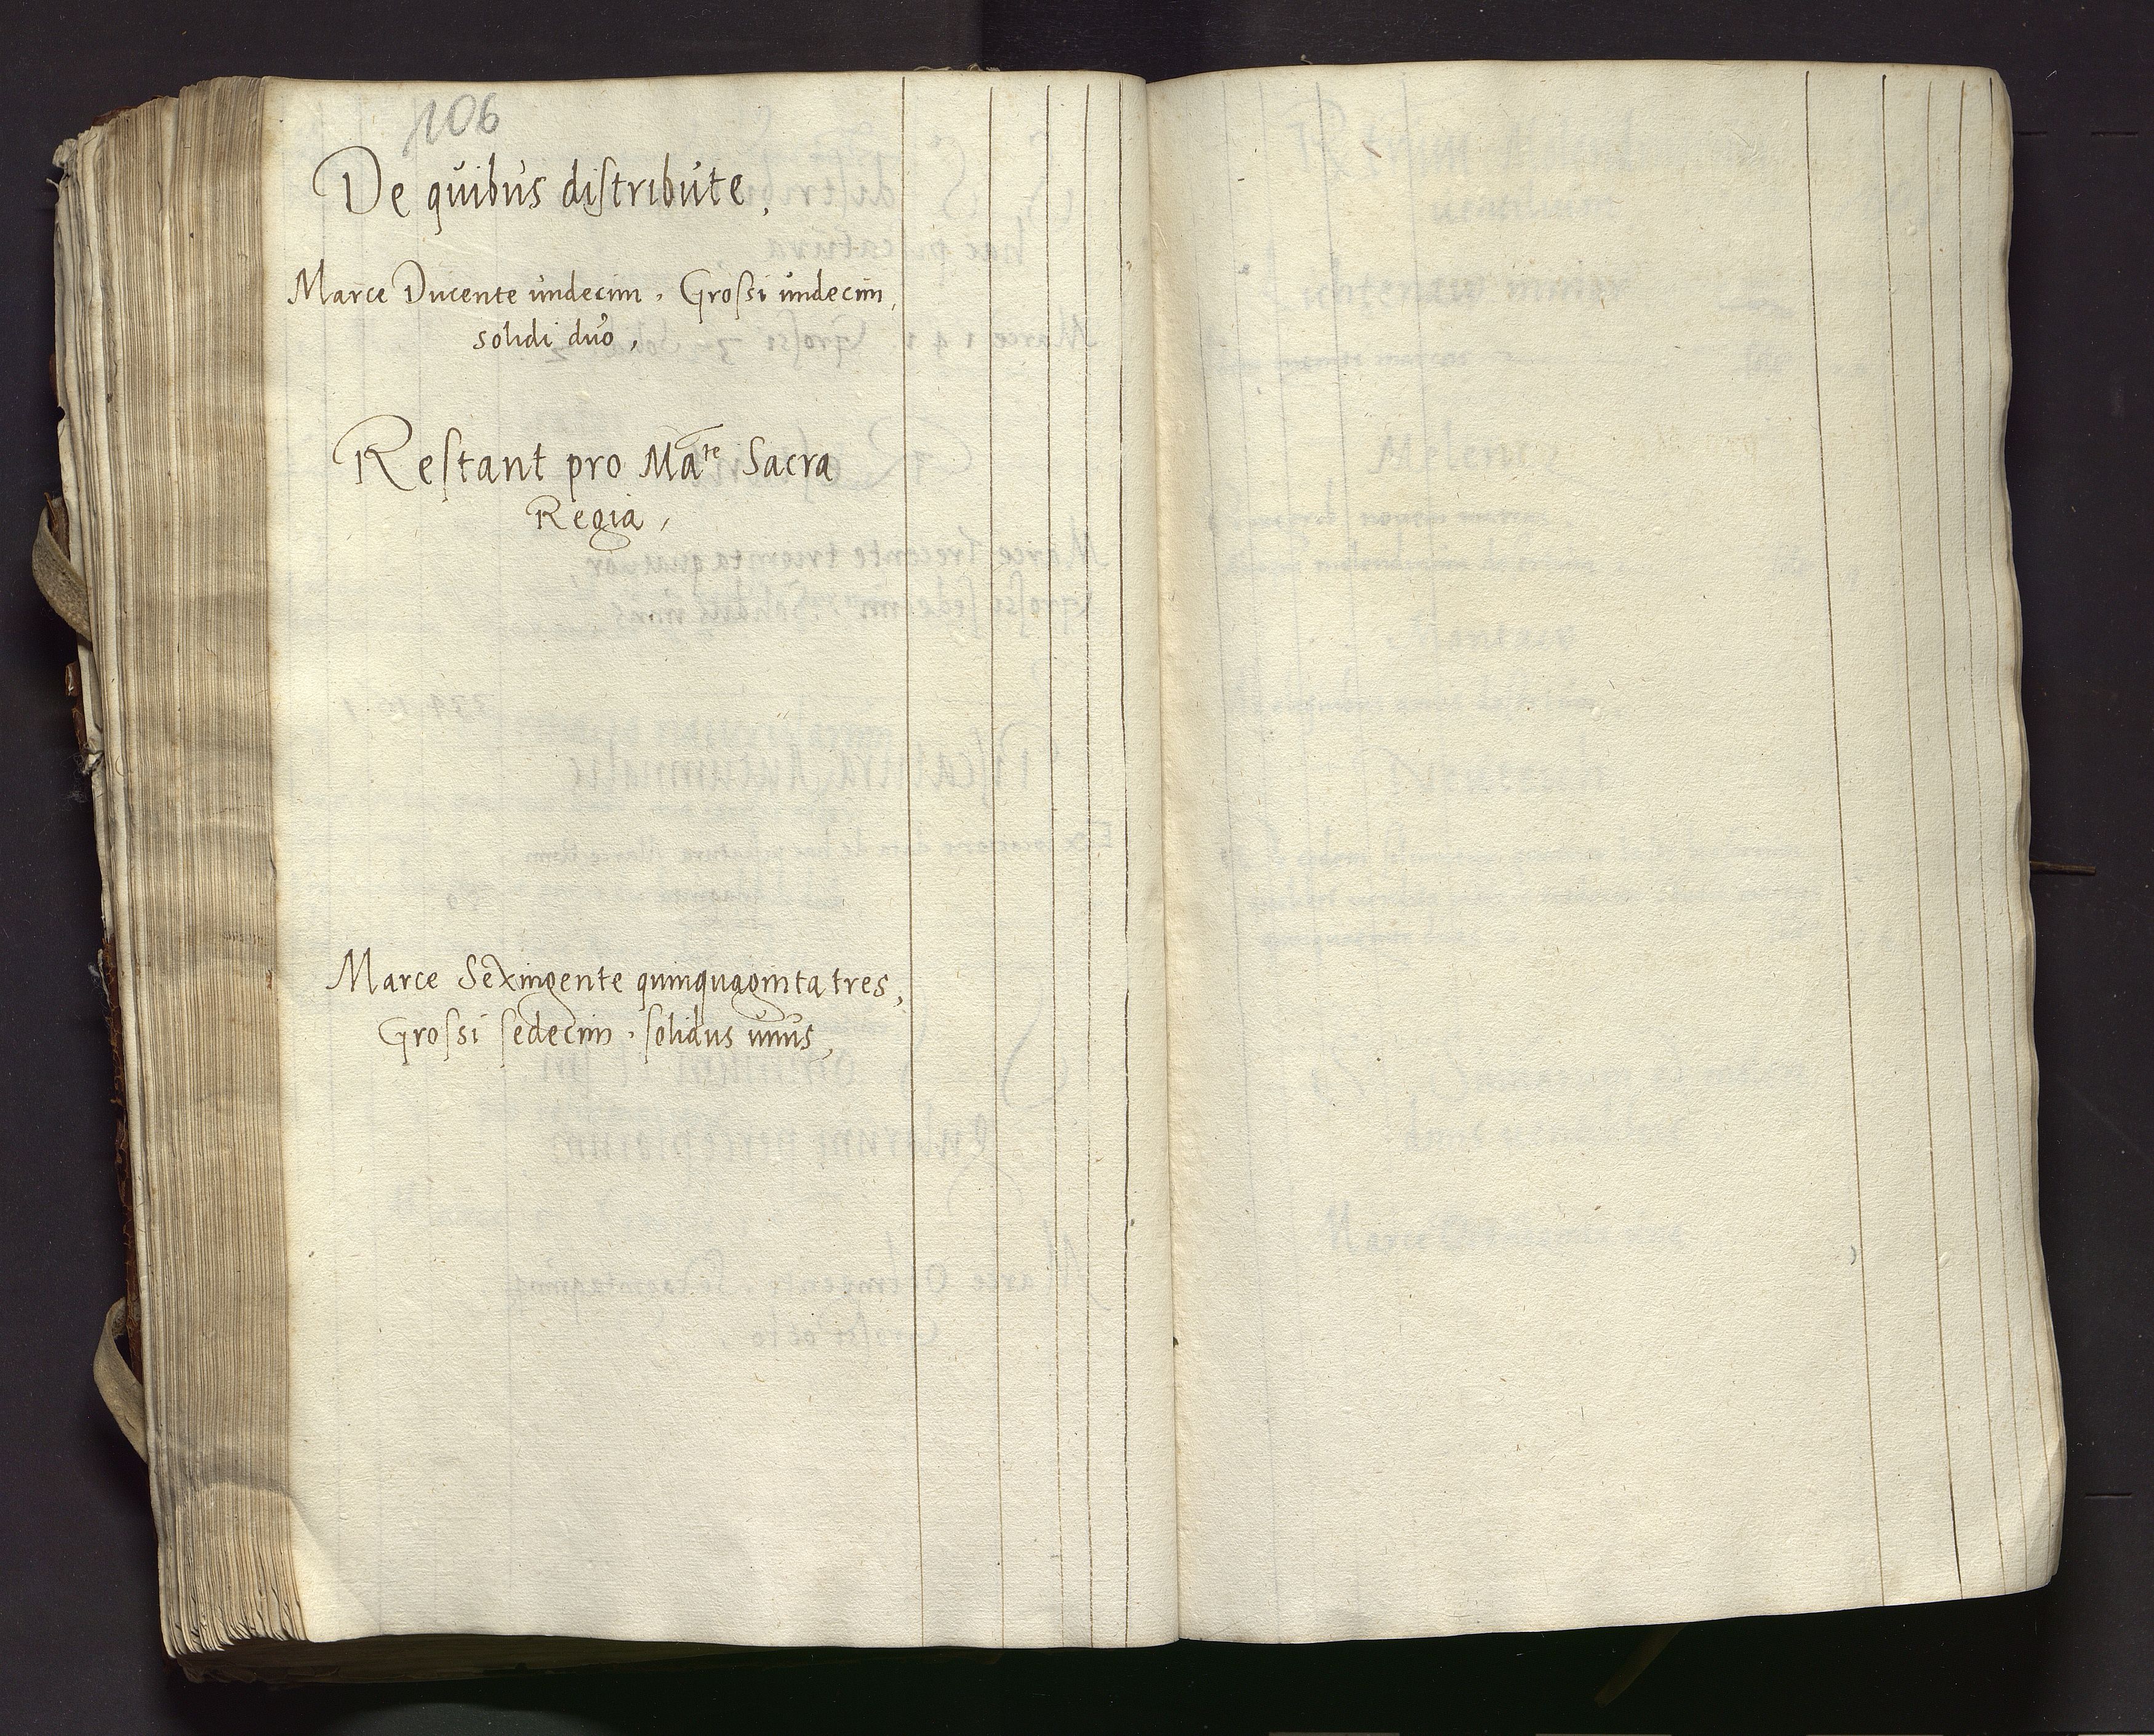 106
De quibus distribute,
Marce Ducente undecim, Grossi undecim,
solidi duo,
Restant pro Ma^te Sacra
Regia,
Marce Sexingente quinquaginta tres,
Grossi sedecim, solidus unus,